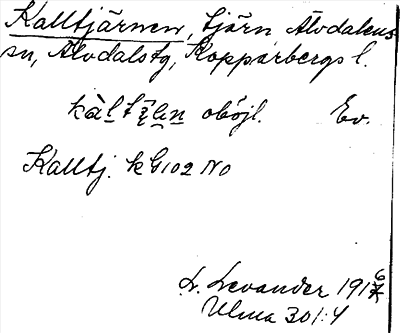 Kalltjärnen, tjärn Älvdalens
sn, Älvdalstg, Kopparbergs l.
oböjl. Ev.
Kalltj. k G102 NO
L. Levander 1916
Ulma 301:4